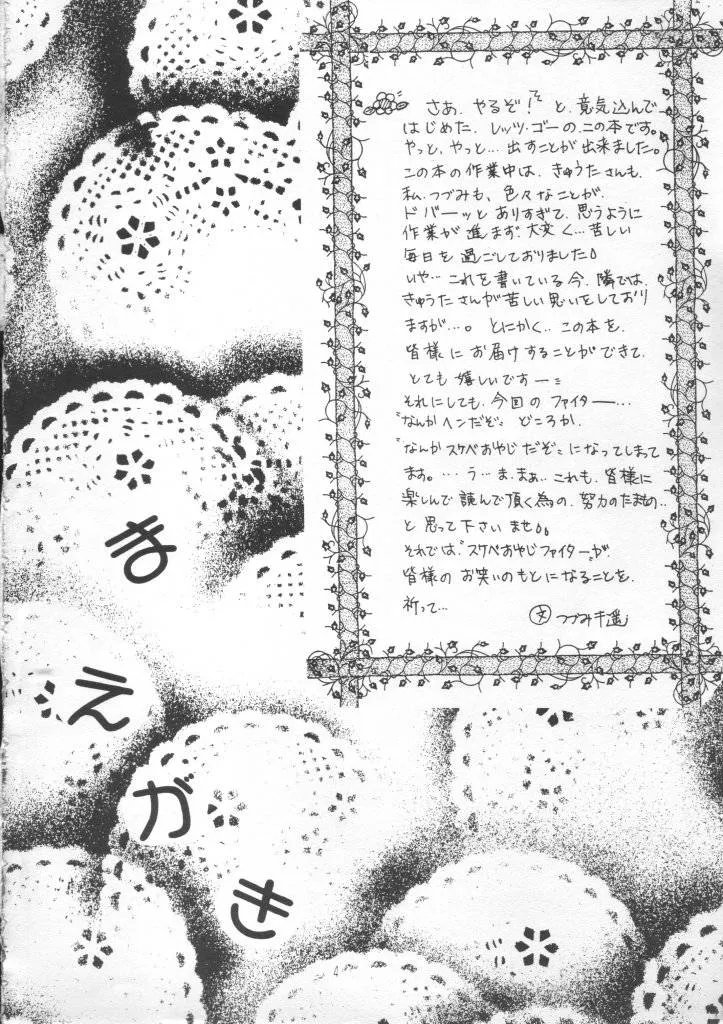 まえがき
さあ、やるぞ!と、意気込んで
はじめた、レッツ・ゴーの、この本です。
やっと、やっと…出すことが出来ました。
この本の作業中は、きゅうたさんも、
私、つづみも、色々なことが、
ドバーッとありすぎて、思うように
作業が進まず、大変く…苦しい
毎日を過ごしておりました。
いや…これを書いている今、隣では、
きゅうたさんが苦しい思いをしており
ますが…。とにかく、この本を、
皆様にお届けすることができて、
とても嬉しいですー
それにしても、今回のファイター…
"なんかヘンだぞ"どころか、
"なんかスケベおやじだぞ"になってしまって
ます。…う…ま、まぁ、これも、皆様に
楽しんで読んで頂く為の、努力のたまもの‥
と思って下さいませ。
それでは、"スケベおやじファイター"が、
皆様のお笑いのもとになることを、
祈って…
文 つづみ